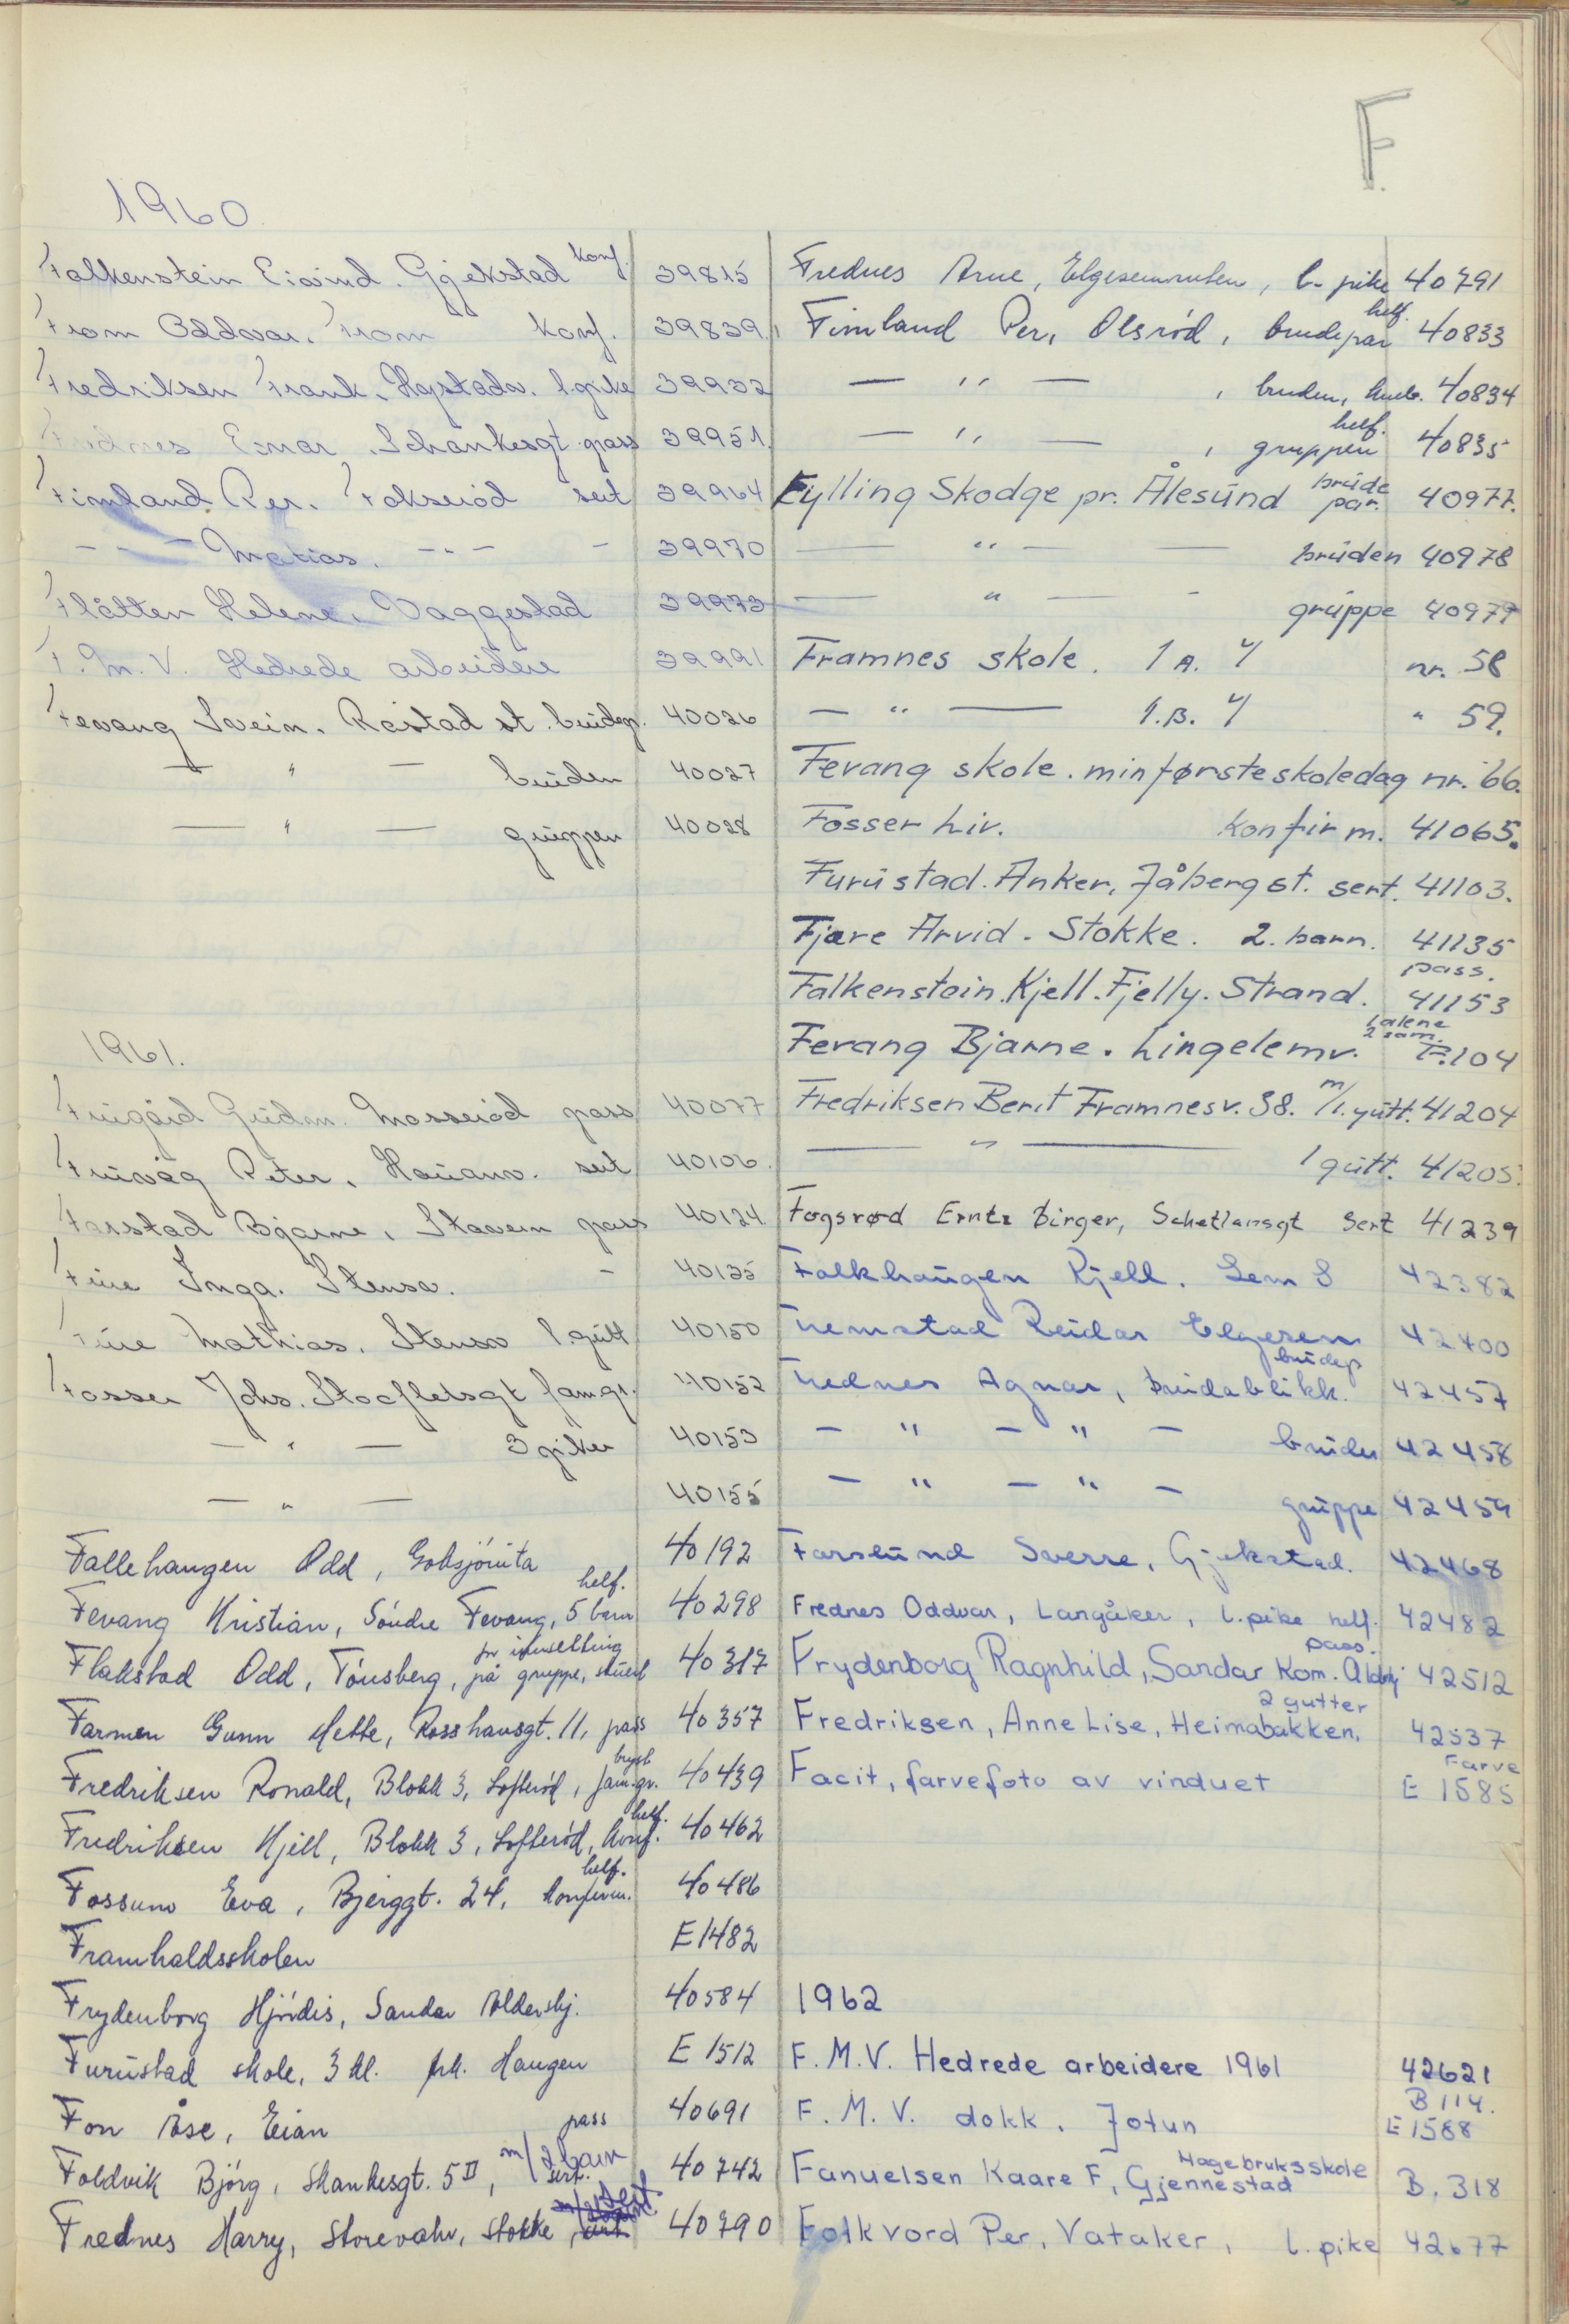 F
1960.
Falkenstein Eivind. Gjekstad konf. 39815
From Oddvar. From konf. 39839.
Fredriksen Frank. Hystadv. l.pike 39932
Frednes Einar. Schankesgt. pass 39951
Fimland Per. Fokserød sert 39964
- - - Matias. - " - - 39970
Flåtten Helene. Vaggestad 39973
F.M.V. Hedrede arbeidere 39991
Fevang Svein. Råstad st. brudep. 40026
— " — bruden 40027
— " — gruppen 40028
1961.
Furgård Gudm. Mosserød pass 40077
Furvåg Peter. Hauanv. sert 40106.
Farstad Bjarne. Stavern pass 40124
Fure Inga. Stensv. - 40135
Fure Mathias. Stensv l.gutt 40150
Fosser Johs. Stocfletsgt fam.gr. 40152
— " — 3 piker 40153
— " — 40155
Fallehaugen Odd, Goksjøruta 40192
Fevang Kristian, Søndre Fevang, 5 barn helf. 40298
Flakstad Odd, Tønsberg, på gruppe, skuesb for innselling 40317
Farmen Gunn Mette, Rosshausgt. 11, pass 40357
Fredriksen Ronald, Blokk 3, Lofterød, fam.gr. bryst 40439
Fredriksen Kjell, Blokk 3, Lofterød, konf. helf. 40462
Fossum Eva, Bjerggt. 24, konfirm. helf. 40486
Framhaldsskolen E 1482
Frydenborg Hjørdis, Sandar Aldershj. 40584
Furustad skole, 3 kl. frk. Haugen E 1512
Fon Åse, Eian pass 40691
Foldvik Bjørg, Skankesgt. 5 II, m/2 barn sert. 40742
Frednes Harry, Storevahr, Stokke, sert 40790
Frednes Arne, Elgesemruten, l. pike 40791
Fimland Per, Olsrød, brudepar helf. 40833
— " — , bruden, kneb. 40834
— " — , gruppen helf. 40835
Fylling Skodge pr. Ålesund brude par. 40977.
— " — — bruden 40978
— " — - gruppe 40979
Framnes skole. 1 A. 4 nr. 58
— " — 1.B. 4 " 59.
Fevang skole. min første skoledag nr. 66.
Fosser Liv. konfirm. 41065.
Furustad. Anker, Jåberg st. sert. 41103.
Fjære Arvid. Stokke. 2. barn. 41135
Falkenstein. Kjell. Fjelly. Strand. pass. 41153
Fevang Bjarne. Lingelemv. 1 alene 2 sam. F. 104
Fredriksen Berit Framnesv. 38. m/1. gutt. 41204
— " — 1 gutt. 41205.
Fogsrød Erntz Birger, Schetlansgt Sert 41239
Falkhaugen Kjell. Lem S 42382
Fremstad Reidar Elgesem 42400
Frednes Agnar, Breidablikk. brudep 42457
- " - " - bruden 42458
- " - " - gruppe 42459
Farslund Sverre, Gjekstad. 42468
Frednes Oddvar, Langåker, l. pike helf. 42482
Frydenborg Ragnhild, Sandar Kom. Aldershj pass. 42512
Fredriksen, Anne Lise, Heimabakken. 2 gutter 42537
Facit, farvefoto av vinduet Farve E 1585
1962
F. M. V. Hedrede arbeidere 1961 42621
B 114.
F. M. V. dokk. Jotun E 1588
Fanuelsen Kaare F, Gjennestad Hagebruksskole B. 318
Folkvord Per, Vataker, l. pike 42677